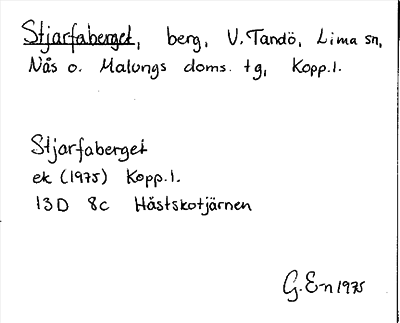 Stjarfaberget, berg, V. Tandö, Lima sn,
Nås o. Malungs doms. tg, Kopp.l.
Stjarfaberget
ek (1975) Kopp.l.
13D 8c Håstskotjärnen
G. E-n 1975